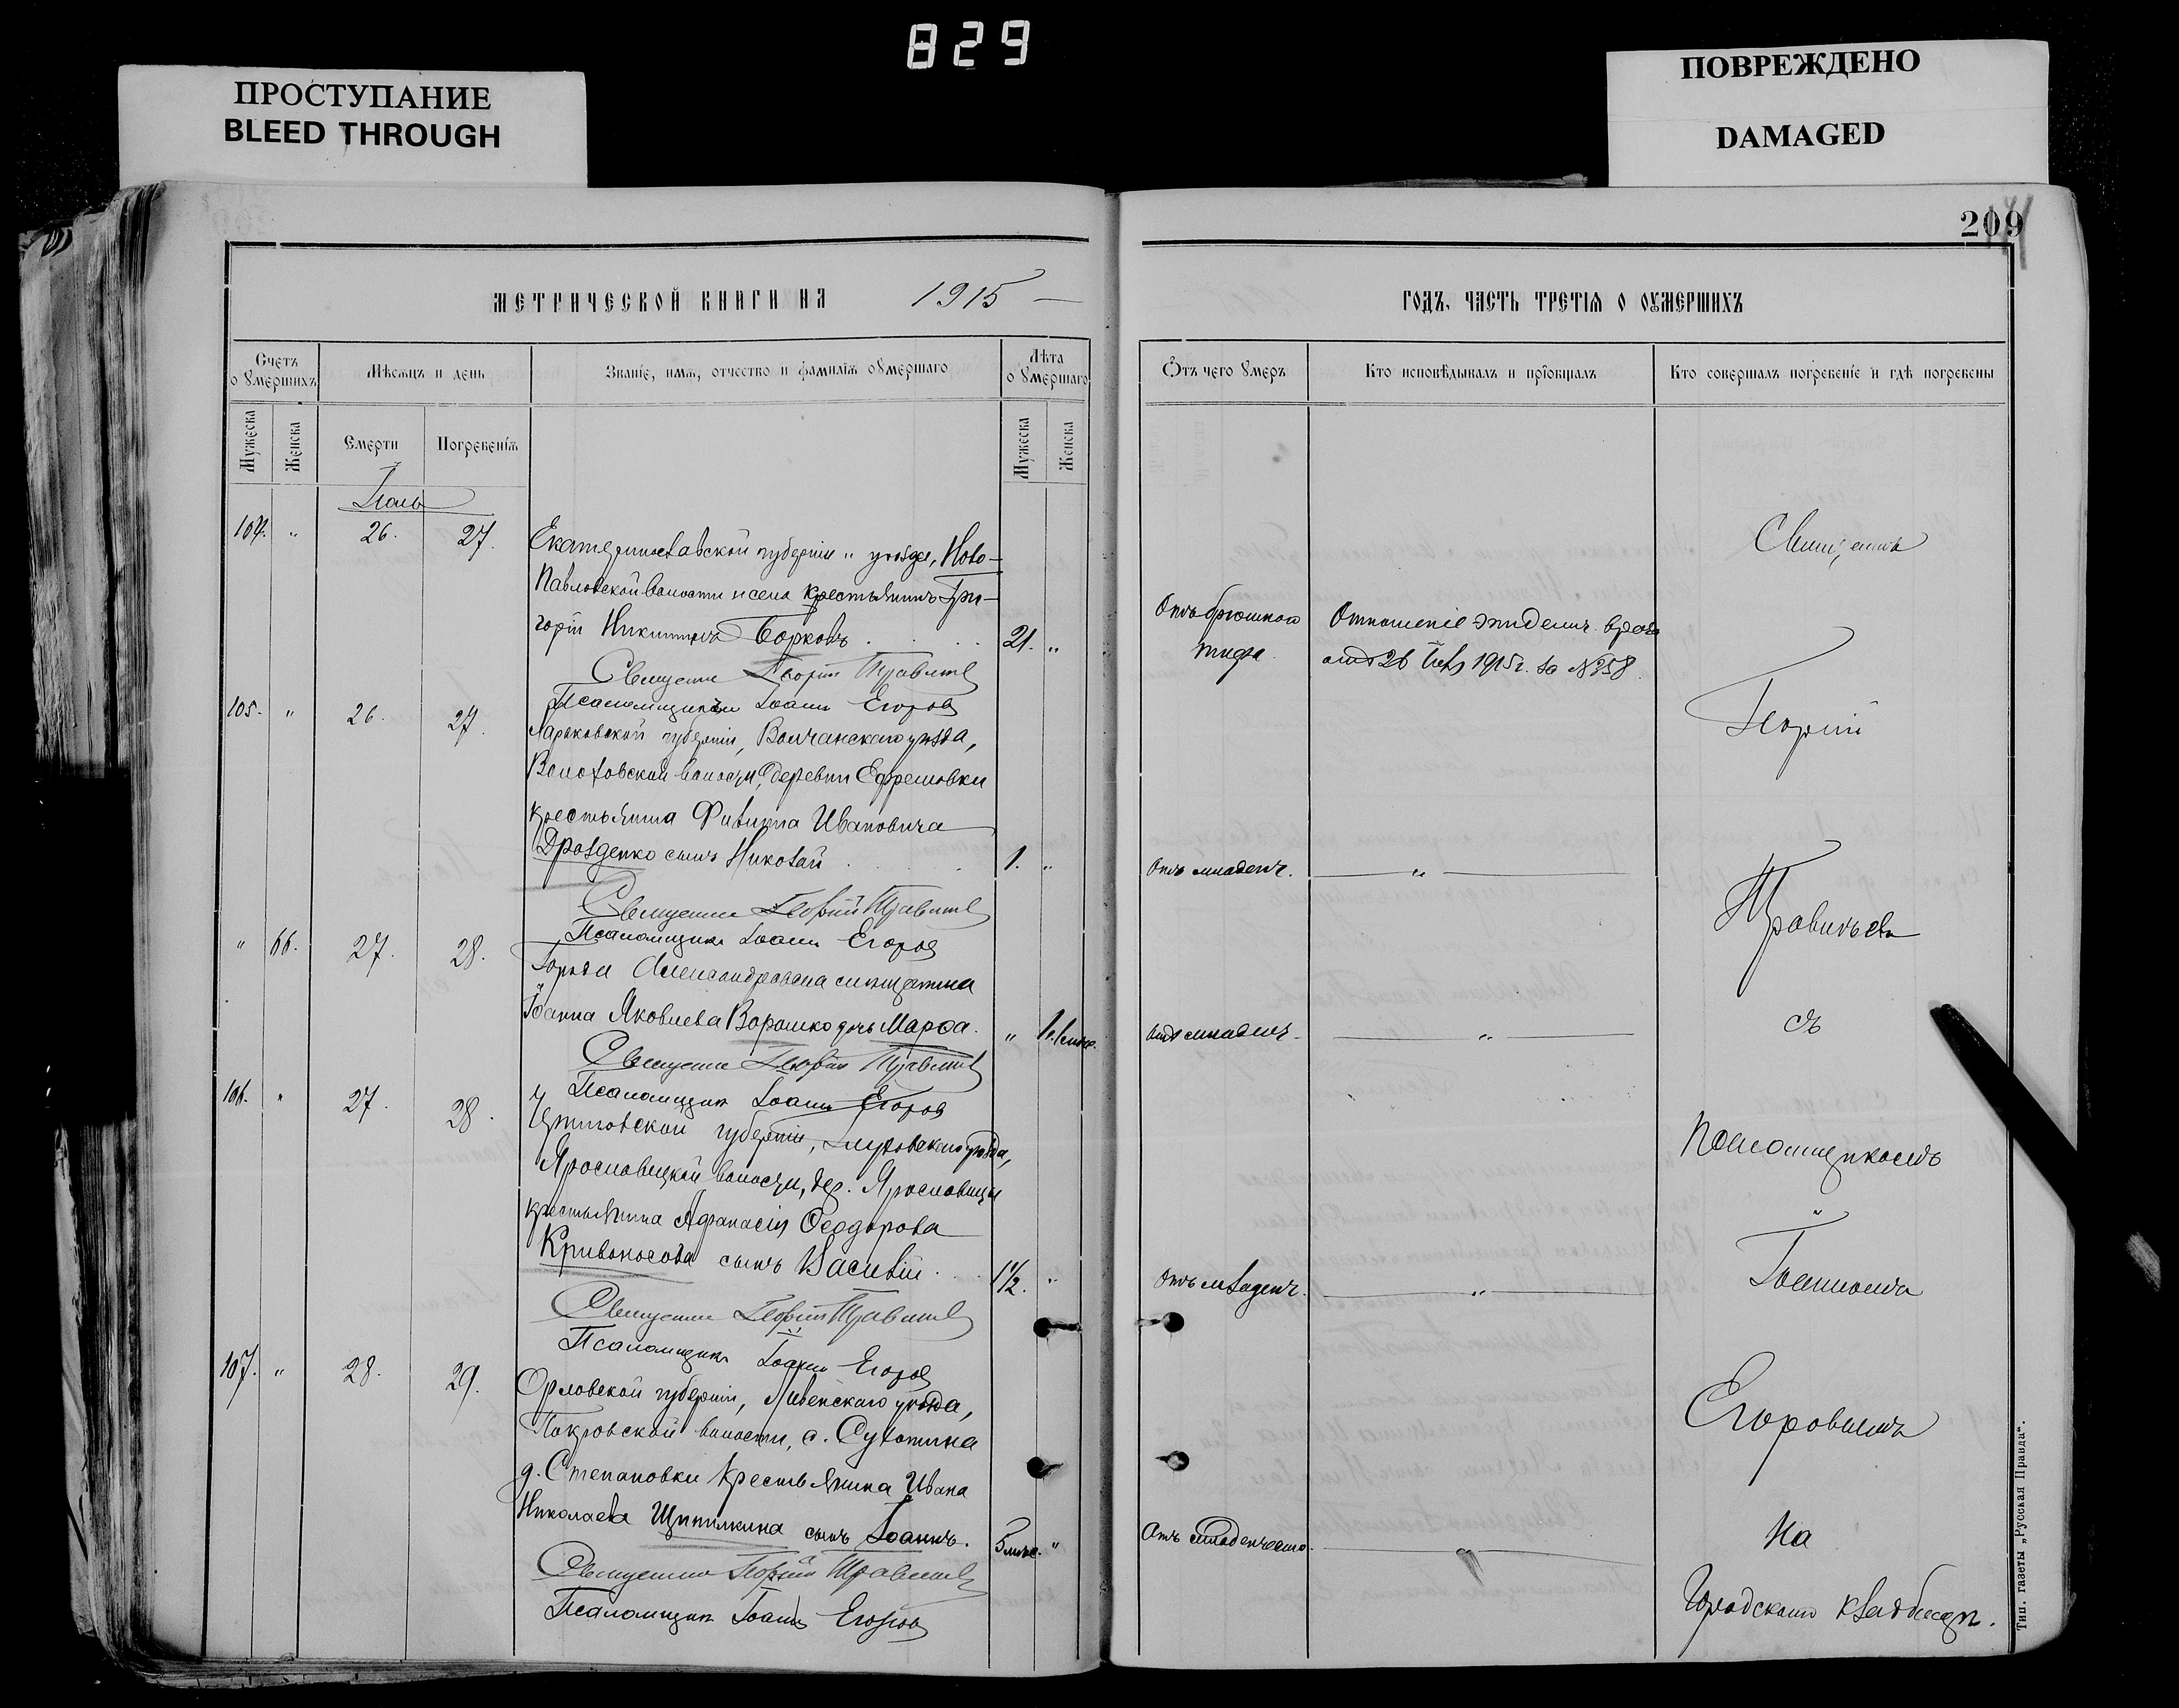 829
ПРОСТУПАНИЕ
BLEED THROUGH
ПОВРЕЖДЕНО
DAMAGED
209
МЕТРИЧЕСКОЙ КНИГИ НА 1915
Счетъ о умершихъ
Мѣсяцъ и день
Званіе, имя, отчество и фамилія умершаго
Лѣта умершаго
Мужеска
Женска
Смерти
Погребенія
Мужеска
Женска
Іюль
104. " 26. 27. Екатеринославской губерніи " уѣзда, Ново-
Павловской волости и села крестьянинъ Гри-
горій Никитинъ Борковъ 21. "
Священникъ Георгій
Псаломщикъ Іоаннъ Егоровъ
105. " 26. 27. Харьковской губерніи, Волчанскаго уѣзда,
волости, деревни Ефремовки
крестьянина Филиппа Ивановича
Дрозденко сынъ Николай 1. "
Священникъ Георгій
Псаломщикъ Іоаннъ Егоровъ
" 66. 27. 28. Города Александровска мѣщанина
Іоанна Яковлева Ворошко дочь Марфа. "
Священникъ Георгій
Псаломщикъ Іоаннъ Егоровъ
106. " 27. 28. Черниговской губерніи, уѣзда,
Ярославецкой волости, дер. Ярославецъ
крестьянина Афанасія Феодорова
Кривоносова сынъ Василій 1½. "
Священникъ Георгій
Псаломщикъ Іоаннъ Егоровъ
107. " 28. 29. Орловской губерніи, Ливенскаго уѣзда,
Покровской волости, с. Сухотина
д. Степановки крестьянина Ивана
Николаева Щипилкина сынъ Іоаннъ. 5 мѣс. "
Священникъ Георгій
Псаломщикъ Іоаннъ Егоровъ
ГОДЪ, ЧАСТЬ ТРЕТІЯ О УМЕРШИХЪ
Отъ чего умеръ
Кто исповѣдывалъ и пріобщалъ
Кто совершалъ погребеніе и гдѣ погребены
Отъ брюшного
тифа.
Отношеніе эпидемич. врача
отъ 26 1915 г. за № 358.
Отъ младенч. "
Отъ младенч. "
Отъ младенч. "
Отъ младенчества. "
Священникъ
Георгій
съ
Псаломщикомъ
Іоанномъ
Егоровымъ
На
Городскомъ кладбищѣ.
Тип. газеты „Русская Правда“.